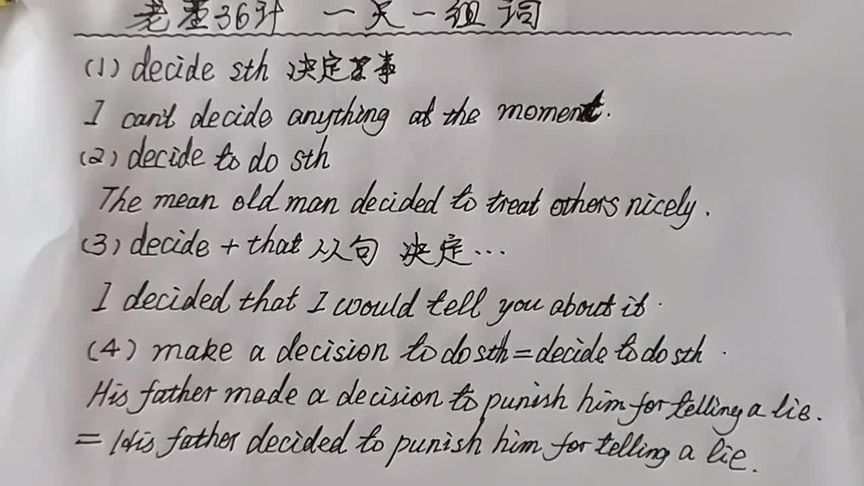 老董36计 一天一组词
(1) decide sth 决定某事
I can't decide anything at the moment.
(2) decide to do sth
The mean old man decided to treat others nicely.
(3) decide + that 从句 决定...
I decided that I would tell you about it.
(4) make a decision to do sth = decide to do sth.
His father made a decision to punish him for telling a lie.
= His father decided to punish him for telling a lie.